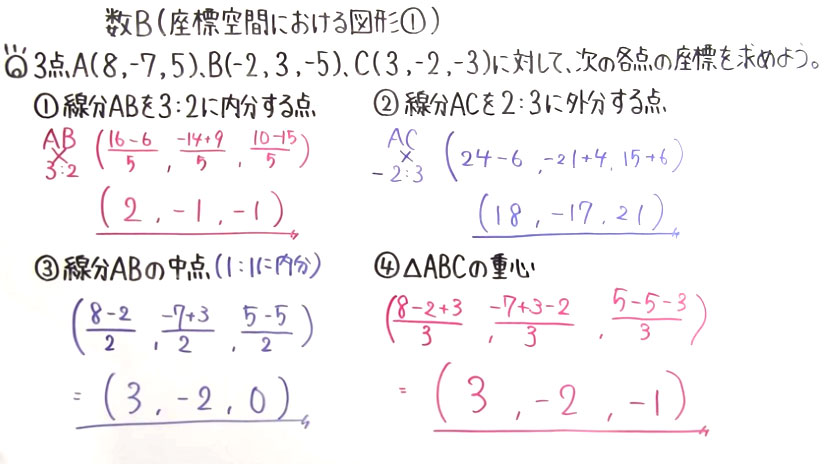 数B(座標空間における図形①)
3点A(8,-7,5)、B(-2,3,-5)、C(3,-2,-3)に対して、次の各点の座標を求めよう。
①線分ABを3:2に内分する点
AB
3:2
(16-6/5, -14+9/5, 10-15/5)
(2, -1, -1)
②線分ACを2:3に外分する点
AC
-2:3
(24-6, -21+4, 15+6)
(18, -17, 21)
③線分ABの中点(1:1に内分)
(8-2/2, -7+3/2, 5-5/2)
=(3, -2, 0)
④△ABCの重心
(8-2+3/3, -7+3-2/3, 5-5-3/3)
=(3, -2, -1)